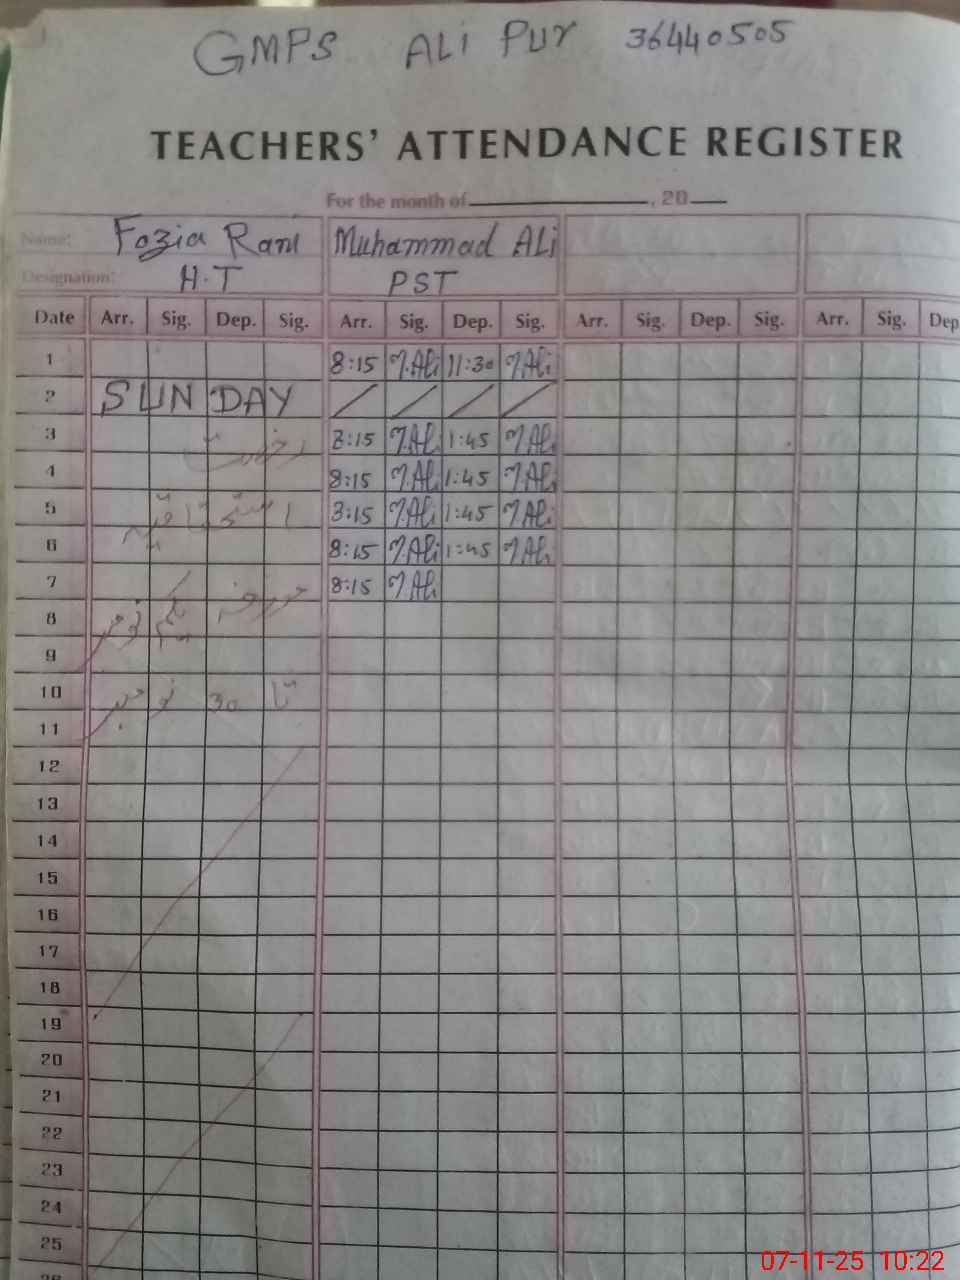 GMPS ALi PUr 36440505
TEACHERS' ATTENDANCE REGISTER
For the month of , 20
Name: Fozia Rani Muhammad ALi
Designation: H.T PST
Date Arr. Sig. Dep. Sig. Arr. Sig. Dep. Sig. Arr. Sig. Dep. Sig. Arr. Sig. Dep
1 8:15 M.Ali 11:30 M.Ali
2 SUNDAY
3 رخصت 8:15 M.Ali 1:45 M.Ali
4 8:15 M.Ali 1:45 M.Ali
5 8:15 M.Ali 1:45 M.Ali
6 8:15 M.Ali 1:45 M.Ali
7 8:15 M.Ali
8 مورخہ یکم نومبر
9
10 تا 30 نومبر
11
12
13
14
15
16
17
18
19
20
21
22
23
24
25
26
07-11-25 10:22